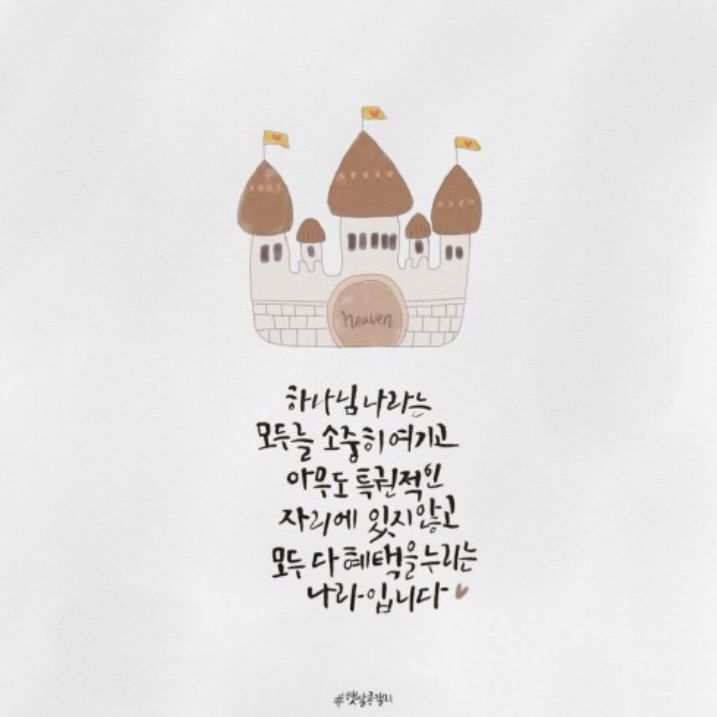 heaven
하나님 나라는
모두를 소중히 여기고
아무도 특권적인
자리에 있지 않고
모두 다 혜택을 누리는
나라입니다